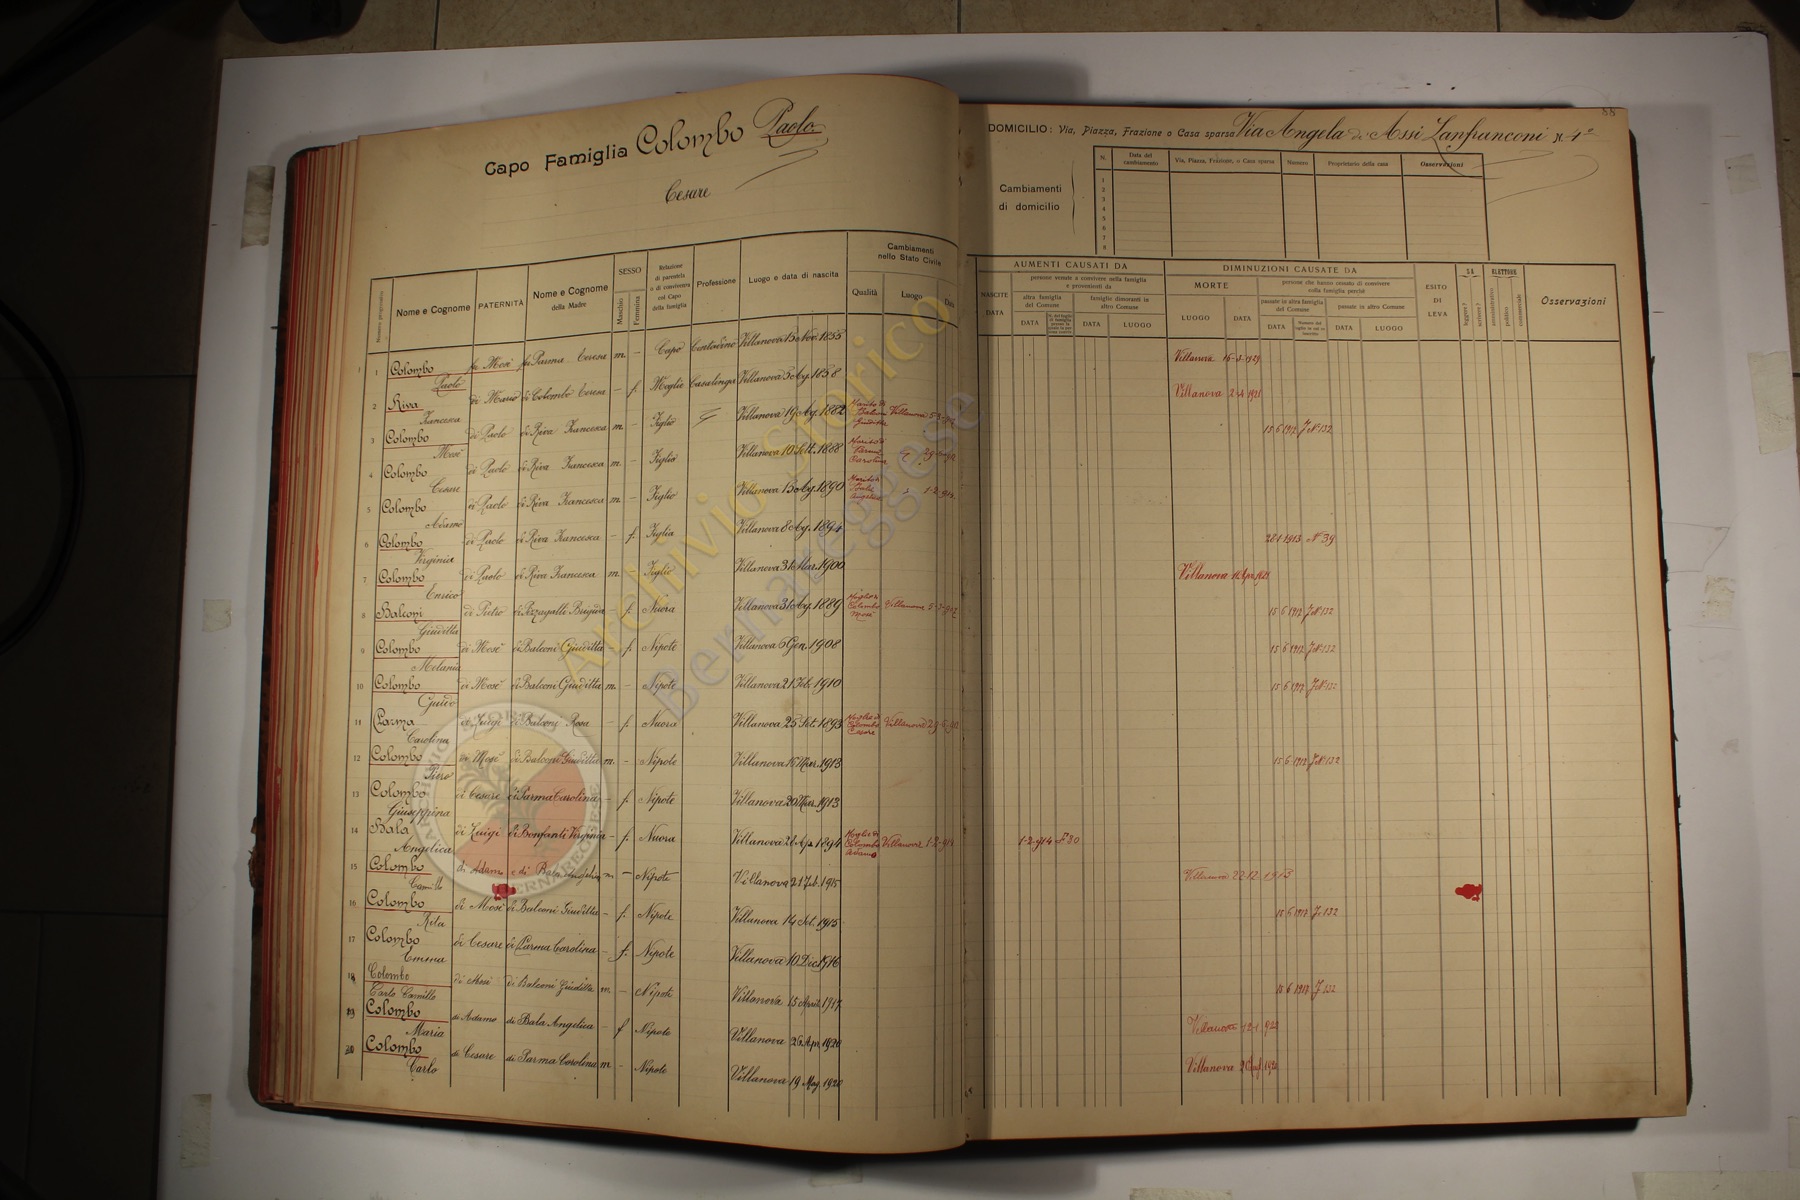 Capo Famiglia Colombo Paolo
Cesare
Nome e Cognome
PATERNITÀ
Nome e Cognome della Madre
SESSO
Maschio
Femmina
Relazione di parentela o di convivenza col Capo della famiglia
Professione
Luogo e data di nascita
Cambiamenti nello Stato Civile
Qualità
Luogo
Data
1 Colombo Paolo fu Mosè fu Parma Teresa m. – Capo Contadino Villanova 15 Nov. 1855
2 Riva Francesca di Mario di Colombo Teresa – f. Moglie Casalinga Villanova 5 Ag. 1858
3 Colombo Mosè di Paolo di Riva Francesca m. – Figlio Villanova 19 Ag. 1882 Marito di Balconi Giuditta Villanova
4 Colombo Cesare di Paolo di Riva Francesca m. – Figlio Villanova 10 Sett. 1888 Marito di Parma Carolina
5 Colombo Adamo di Paolo di Riva Francesca m. – Figlio Villanova 15 Ag. 1890 Marito di Angelica 1-2-914
6 Colombo Virginia di Paolo di Riva Francesca – f. Figlia Villanova 8 Ag. 1894
7 Colombo Enrico di Paolo di Riva Francesca m. Figlio Villanova 31 Mar. 1900
8 Balconi Giuditta di Pietro di Pozzagalli Brigida – f. Nuora Villanova 31 Ag. 1889 Moglie di Colombo Mosè Villanova
9 Colombo Melania di Mosè di Balconi Giuditta – f. Nipote Villanova 6 Gen. 1908
10 Colombo Guido di Mosè di Balconi Giuditta m. – Nipote Villanova 21 Feb. 1910
11 Parma Carolina di Luigi di Balconi Rosa – f. Nuora Villanova 25 Set. 1893 Moglie di Colombo Cesare Villanova
12 Colombo Piero di Mosè di Balconi Giuditta m. – Nipote Villanova 16 Mar. 1913
13 Colombo Giuseppina di Cesare di Parma Carolina – f. Nipote Villanova 20 Mar. 1913
14 Bala Angelica di Luigi di Bonfanti Virginia – f. Nuora Villanova Ap. 1894 Moglie di Colombo Adamo Villanova 1-2-914
15 Colombo Camillo di Adamo e di Bala Angelica m – Nipote Villanova 21 Feb. 1915
16 Colombo Rita di Mosè di Balconi Giuditta – f. Nipote Villanova 14 Set. 1915
17 Colombo Emma di Cesare di Parma Carolina – f. Nipote Villanova 10 Dic. 1916
18 Colombo Carlo Camillo di Mosè di Balconi Giuditta m – Nipote Villanova 15 April. 1917
19 Colombo Maria di Adamo di Bala Angelica – f Nipote Villanova 26 Apr. 1920
20 Colombo Carlo di Cesare di Parma Carolina m – Nipote Villanova 19 Mag 1920
88
DOMICILIO: Via, Piazza, Frazione o Casa sparsa Via Angela di Assi Lanfranconi N. 4
Cambiamenti di domicilio
N.
Data del cambiamento
Via, Piazza, Frazione, o Casa sparsa
Numero
Proprietario della casa
Osservazioni
1
2
3
4
5
6
7
8
AUMENTI CAUSATI DA
NASCITE
DATA
persone venute a convivere nella famiglia e provenienti da
altra famiglia del Comune
DATA
famiglie dimoranti in altro Comune
DATA
LUOGO
DIMINUZIONI CAUSATE DA
MORTE
LUOGO
DATA
persone che hanno cessato di convivere colla famiglia perchè
passate in altra famiglia del Comune
DATA
passate in altro Comune
DATA
LUOGO
ESITO DI LEVA
SA
leggere?
scrivere?
ELETTORE
amministrativo
politico
commerciale
Osservazioni
Villanova 16-3-1929
Villanova
15 6 1917 F N 132
28 1 1913 N° 39
Villanova
15 6 1917 F N 132
15 6 1917 F N 132
15 6 1917 F N 132
15 6 1917 F N 132
1-2-914 F° 30
Villanova 22 12
15 6 1917 F 132
15 6 1917 F 132
Villanova
Villanova
Archivio Storico
Bernareggese
ARCHIVIO STORICO
BERNAREGGESE